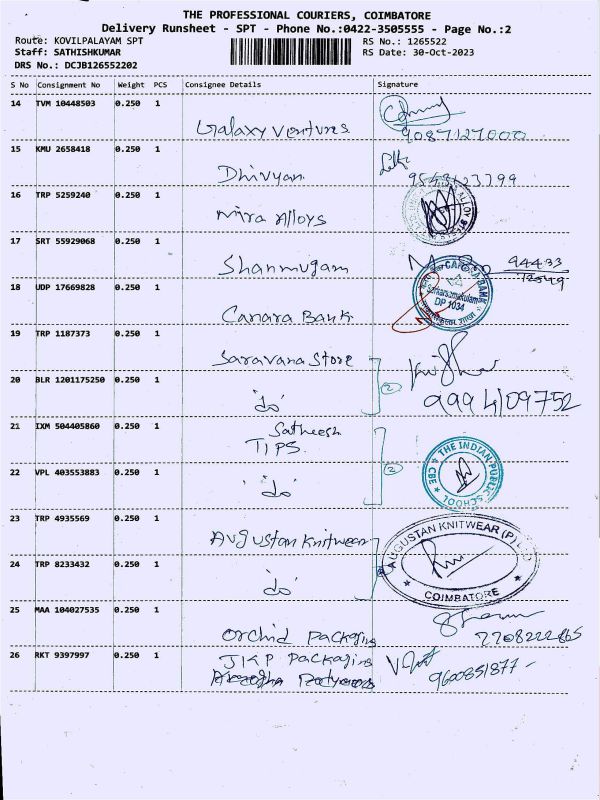 THE PROFESSIONAL COURIERS, COIMBATORE
Delivery Runsheet - SPT - Phone No.:0422-3505555 - Page No.:2
Route: KOVILPALAYAM SPT
RS No.: 1265522
Staff: SATHISHKUMAR
RS Date: 30-Oct-2023
DRS No.: DCJB126552202
S No Consignment No Weight PCS Consignee Details Signature
14 TVM 10448503 0.250 1
Galaxy Ventures 9087127000
15 KMU 2658418 0.250 1
Dhivyan 9543123799
16 TRP 5259240 0.250 1
Mira Alloys
17 SRT 55929068 0.250 1
Shanmugam 94433
18 UDP 17669828 0.250 1
CANARA BANK
DP 1034
Canara Bank
19 TRP 1187373 0.250 1
Saravana Store
20 BLR 1201175250 0.250 1
"do" 2 9994109752
21 IXM 504405860 0.250 1
Satheesh
TIPS
THE INDIAN PUBLIC SCHOOL CBE
22 VPL 403553883 0.250 1
"do" 2
23 TRP 4935569 0.250 1
Augustan Knitwear
AUGUSTAN KNITWEAR (P) LTD
COIMBATORE
24 TRP 8233432 0.250 1
"do"
25 MAA 104027535 0.250 1
Orchid Packaging
26 RKT 9397997 0.250 1
JKP Packaging
9600851877